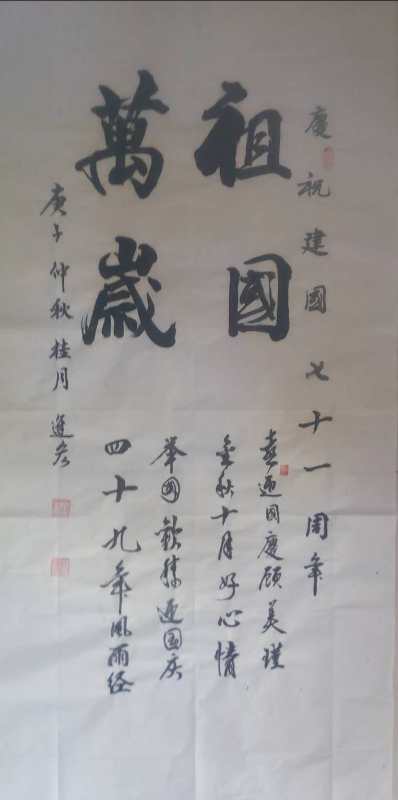 慶祝建國七十一周年
祖國
萬歲
喜迎国慶顾美瑾
金秋十月好心情
举國歡騰迎国庆
四十九年風雨经
庚子仲秋桂月